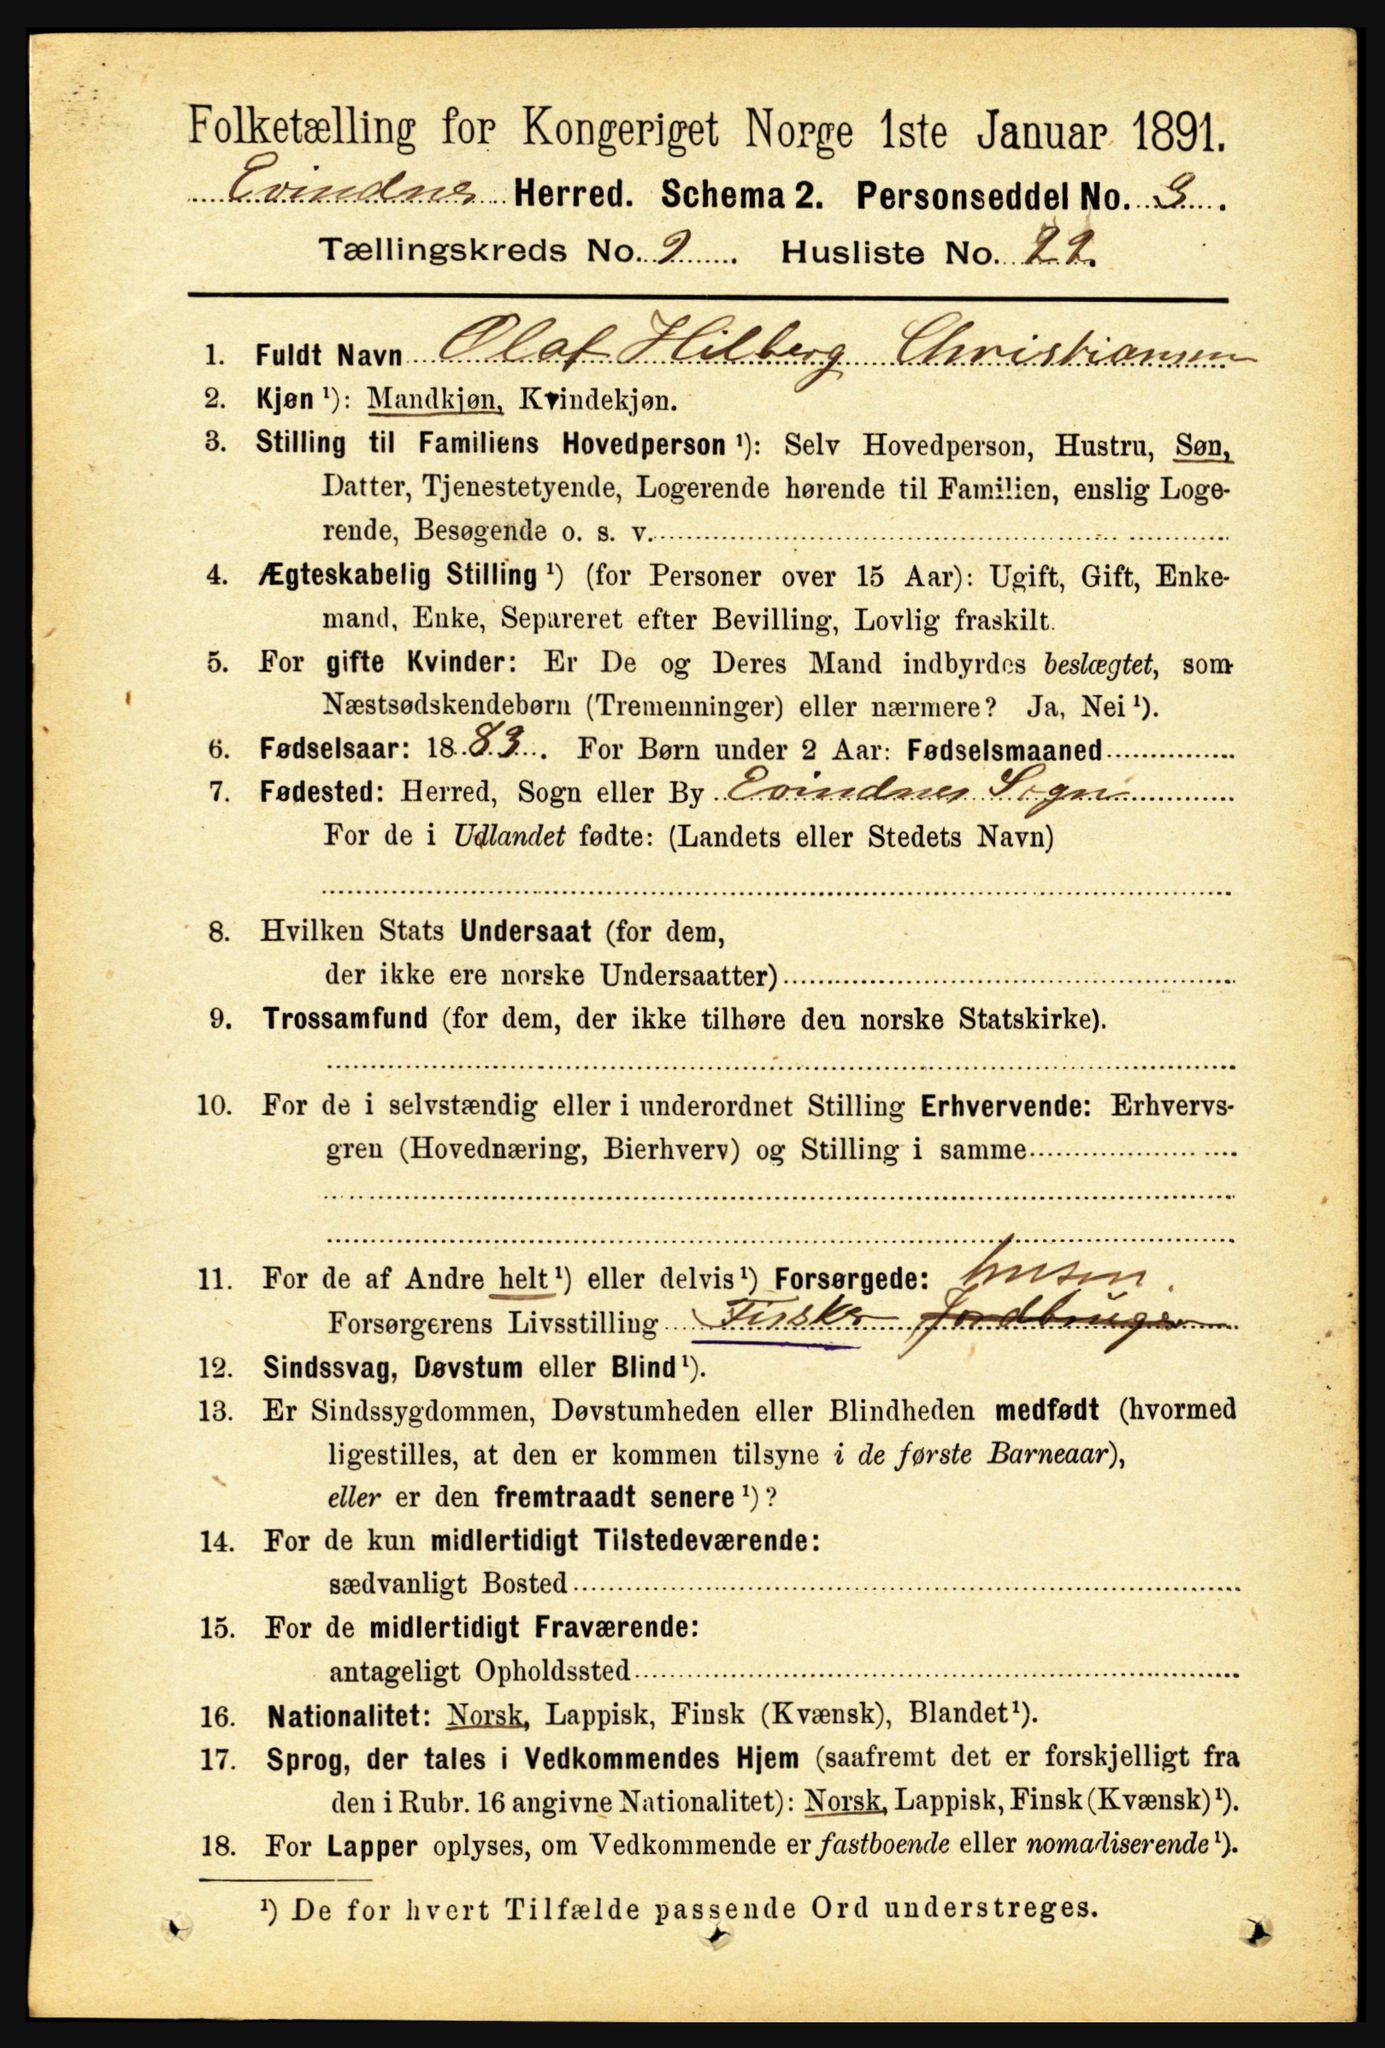 Folketælling for Kongeriget Norge 1ste Januar 1891.
Evindnes Herred. Schema 2. Personseddel No. 3.
Tællingskreds No. 9. Husliste No. 22.
1. Fuldt Navn Olaf Hilberg Christiansen
2. Kjøn ¹): Mandkjøn, Kvindekjøn.
3. Stilling til Familiens Hovedperson ¹): Selv Hovedperson, Hustru, Søn,
Datter, Tjenestetyende, Logerende hørende til Familien, enslig Loge-
rende, Besøgende o. s. v.
4. Ægteskabelig Stilling ¹) (for Personer over 15 Aar): Ugift, Gift, Enke-
mand, Enke, Separeret efter Bevilling, Lovlig fraskilt.
5. For gifte Kvinder: Er De og Deres Mand indbyrdes beslægtet, som
Næstsødskendebørn (Tremenninger) eller nærmere? Ja, Nei ¹).
6. Fødselsaar: 1883. For Børn under 2 Aar: Fødselsmaaned
7. Fødested: Herred, Sogn eller By Evindnes Sogn
For de i Udlandet fødte: (Landets eller Stedets Navn)
8. Hvilken Stats Undersaat (for dem,
der ikke ere norske Undersaatter)
9. Trossamfund (for dem, der ikke tilhøre den norske Statskirke).
10. For de i selvstændig eller i underordnet Stilling Erhvervende: Erhvervs-
gren (Hovednæring, Bierhverv) og Stilling i samme
11. For de af Andre helt ¹) eller delvis ¹) Forsørgede:
Forsørgerens Livsstilling Fisker Jordbruger
12. Sindssvag, Døvstum eller Blind ¹).
13. Er Sindssygdommen, Døvstumheden eller Blindheden medfødt (hvormed
ligestilles, at den er kommen tilsyne i de første Barneaar),
eller er den fremtraadt senere ¹)?
14. For de kun midlertidigt Tilstedeværende:
sædvanligt Bosted
15. For de midlertidigt Fraværende:
antageligt Opholdssted
16. Nationalitet: Norsk, Lappisk, Finsk (Kvænsk), Blandet ¹).
17. Sprog, der tales i Vedkommendes Hjem (saafremt det er forskjelligt fra
den i Rubr. 16 angivne Nationalitet): Norsk, Lappisk, Finsk (Kvænsk) ¹).
18. For Lapper oplyses, om Vedkommende er fastboende eller nomadiserende ¹).
¹) De for hvert Tilfælde passende Ord understreges.